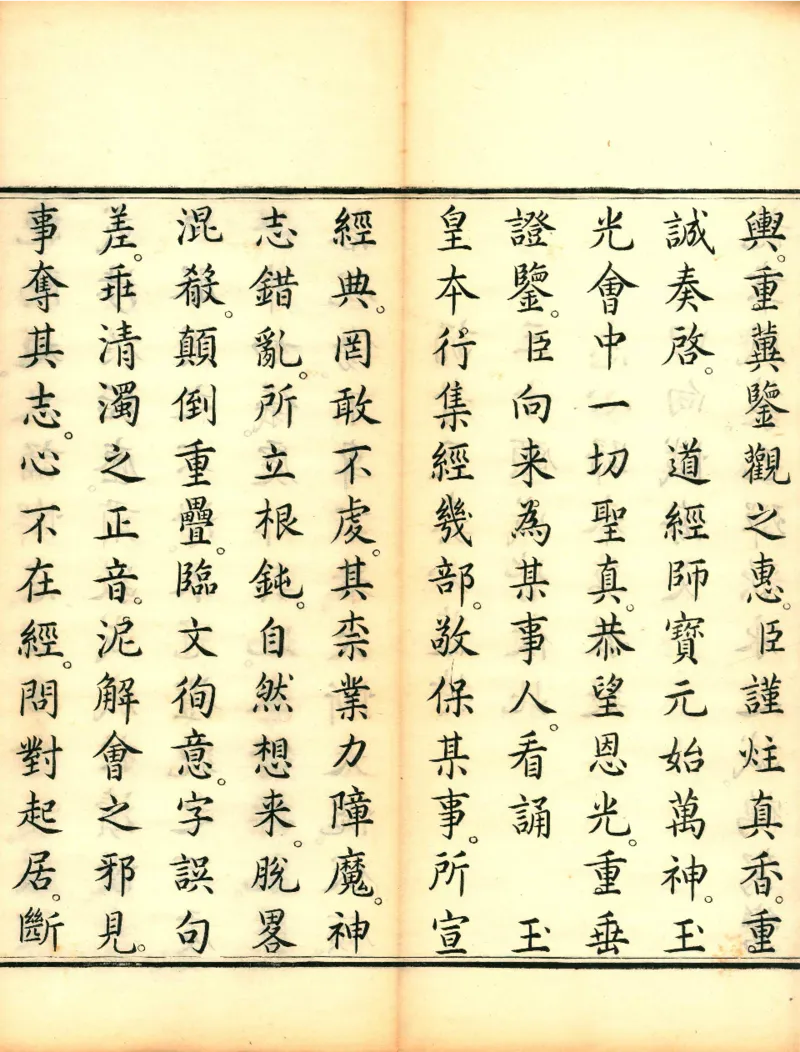 輿。重冀鑒觀之惠。臣謹炷真香。重
誠奏啓。 道經師寶元始萬神。玉
光會中一切聖真。恭望恩光。重垂
證鑒。臣向来為某事人。看誦 玉
皇本行集經幾部。敬保某事。所宣
經典。罔敢不虔。其柰業力障魔。神
志錯亂。所立根鈍。自然想来。脫畧
混殽。顛倒重疊。臨文徇意。字誤句
差。乖清濁之正音。泥解會之邪見。
事奪其志。心不在經。問對起居。斷